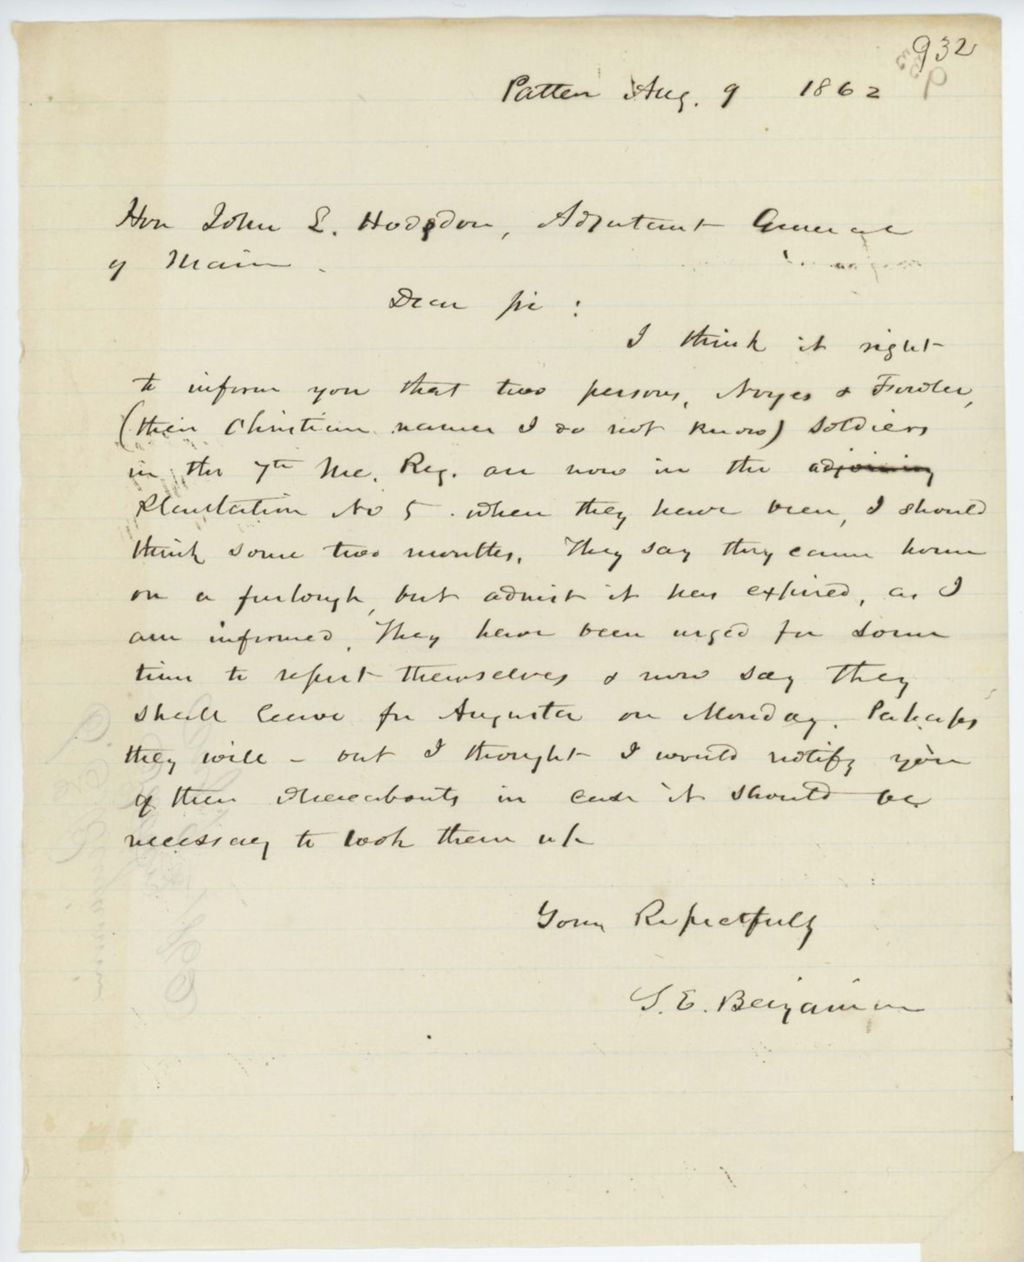 932
Patten Aug. 9 1862
Hon John L. Hodgdon, Adjutant General
of Maine.
Dear Sir:
I think it right
to inform you that two persons, Noyes & Fowler,
(their Christian names I do not know) soldiers
in the 7th Me. Reg. are now in the adjoining
Plantation No 5. where they have been, I should
think some two months. They say they came home
on a furlough, but admit it has expired, as I
am informed. They have been urged for some
time to report themselves & now say they
shall leave for Augusta on Monday. Perhaps
they will - but I thought I would notify you
of their whereabouts in case it should be
necessary to look them up
Yours Respectfully
S. E. Benjamin